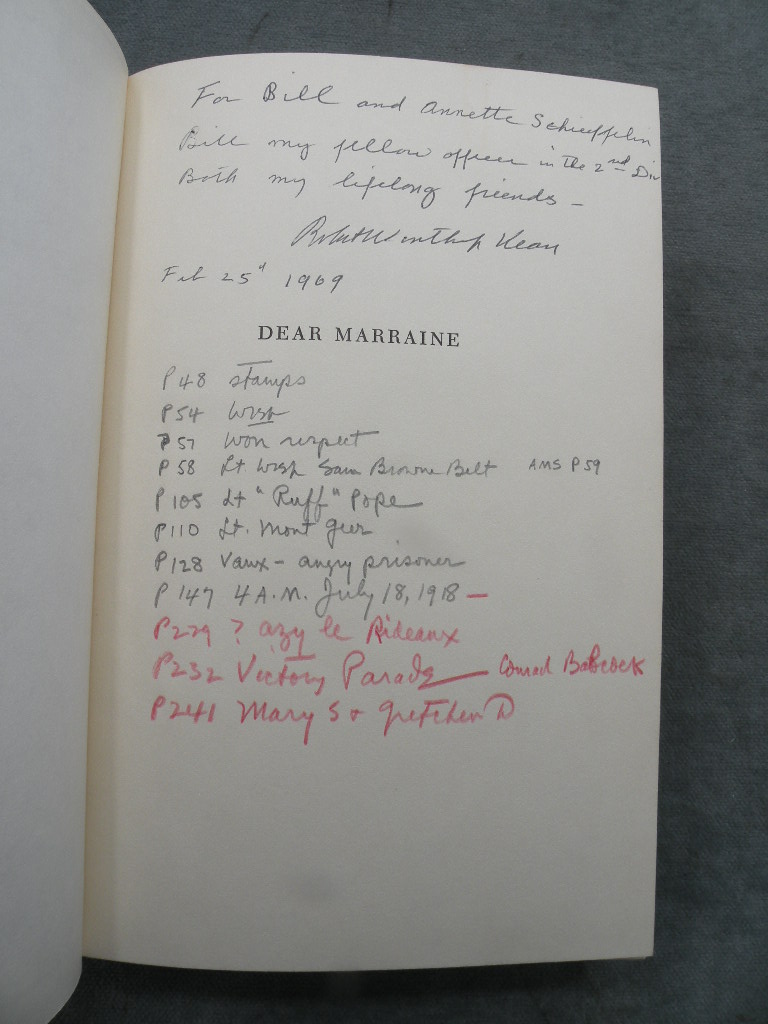 For Bill and Annette Schieffelin
Bill my fellow officer in the 2nd Div
Both my lifelong friends -
Robert Winthrop Kean
Feb 25th 1969
DEAR MARRAINE
P48 stamps
P54
P57 won respect
P58 Lt Sam Browne Belt AMS P59
P105 Lt "Ruff" Pope
P110 Lt. Mont
P128 Vaux - angry prisoner
P147 4 A.M. July 18, 1918 —
P229 ? azy le Rideaux
P232 Victory Parade — Conrad Babcock
P241 Mary S + Gretchen D